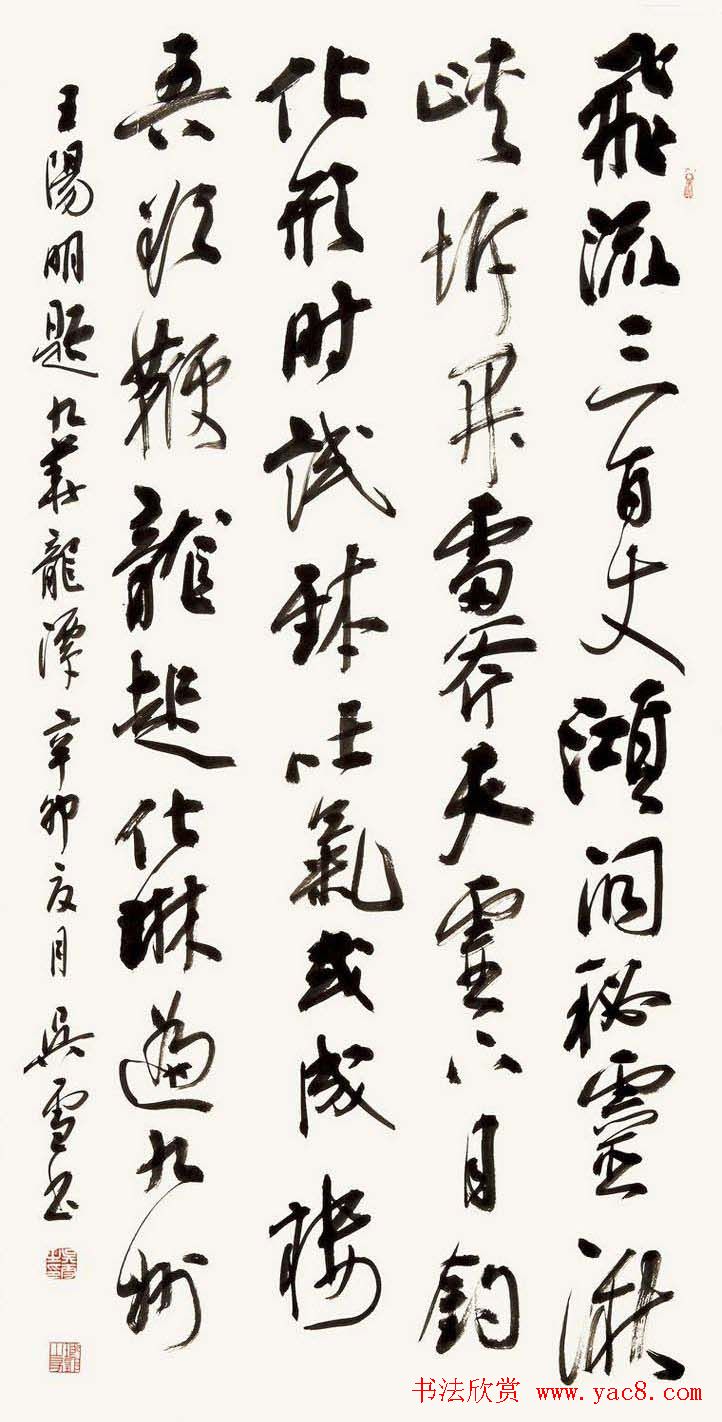 飛流三百丈澒洞秘靈湫
峽坼開雷斧天虛下月鉤
化形时試缽吐氣或成樓
吾欲鞭龍起作霖遍九州
王陽明題九華龍潭辛卯夏月吳雪書
书法欣赏 www.yac8.com